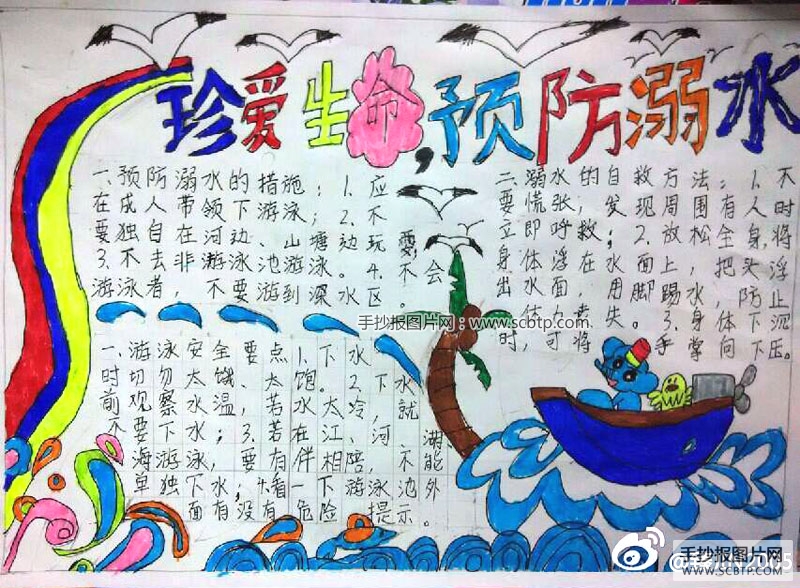 珍爱生命,预防溺水
一、预防溺水的措施：1.应
在成人带领下游泳；2.不
要独自在河边、山塘边玩耍;
3.不去非游泳池游泳。4.不会
游泳者，不要游到深水区。
二、溺水的自救方法：1.不
要慌张，发现周围有人时
立即呼救；2.放松全身,将
身体浮在水面上，把头浮
出水面，用脚踢水，防止
体力丧失。3.身体下沉
时，可将手掌向下压。
手抄报图片网：www.scbtp.com
一、游泳安全要点1.下水
时切勿太饿、太饱。2.下水
前观察水温，若水太冷，就
不要下水；3.若在江、河、湖
海游泳，要有伴相陪，不能
单独下水；4.看一下游泳池外
面有没有危险提示。
手抄报图片网
WWW.SCBTP.COM